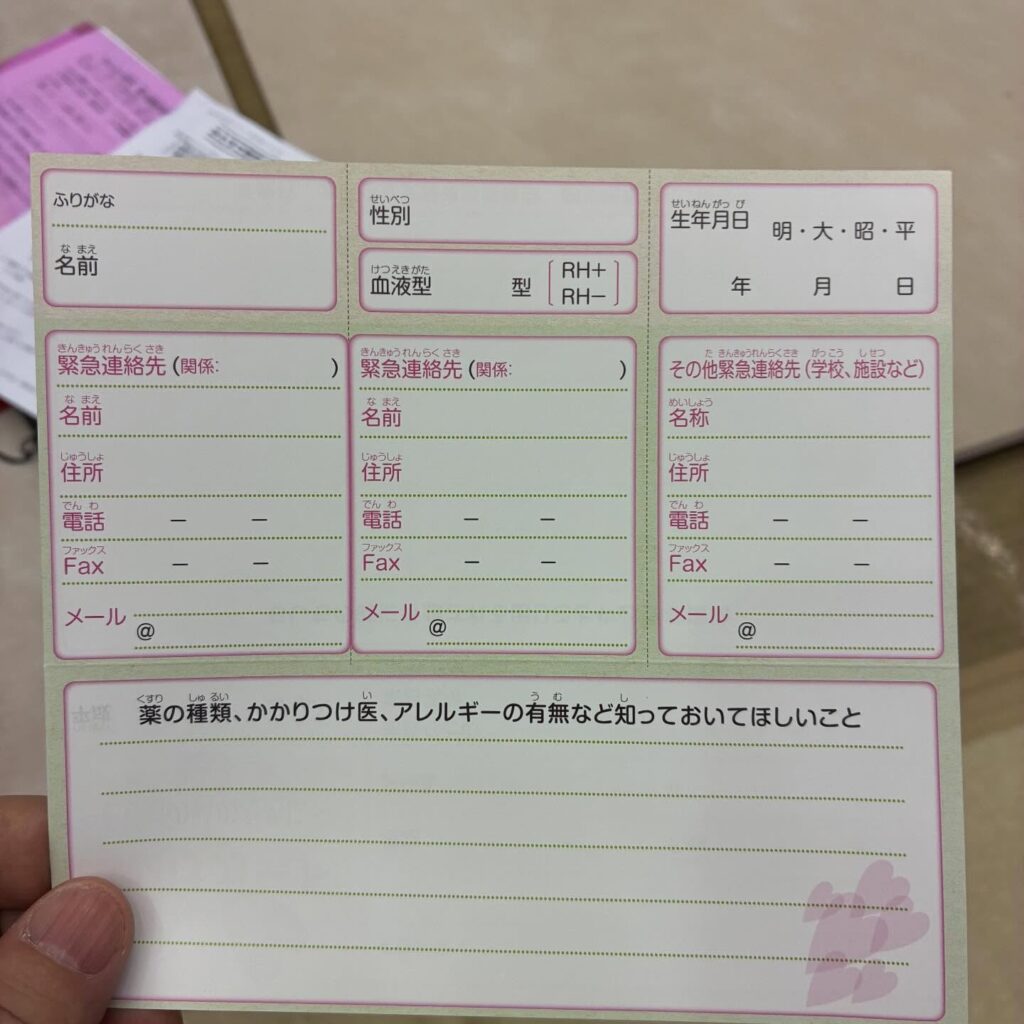 ふりがな
なまえ
名前
せいべつ
性別
けつえきがた
血液型 型 RH+
RH−
せいねんがっぴ
生年月日 明・大・昭・平
年 月 日
きんきゅうれんらくさき
緊急連絡先(関係: )
なまえ
名前
じゅうしょ
住所
でんわ
電話 − −
ファックス
Fax − −
メール
@
きんきゅうれんらくさき
緊急連絡先(関係: )
なまえ
名前
じゅうしょ
住所
でんわ
電話 − −
ファックス
Fax − −
メール
@
たきんきゅうれんらくさき がっこう しせつ
その他緊急連絡先(学校、施設など)
めいしょう
名称
じゅうしょ
住所
でんわ
電話 − −
ファックス
Fax − −
メール
@
くすり しゅるい い うむ し
薬の種類、かかりつけ医、アレルギーの有無など知っておいてほしいこと